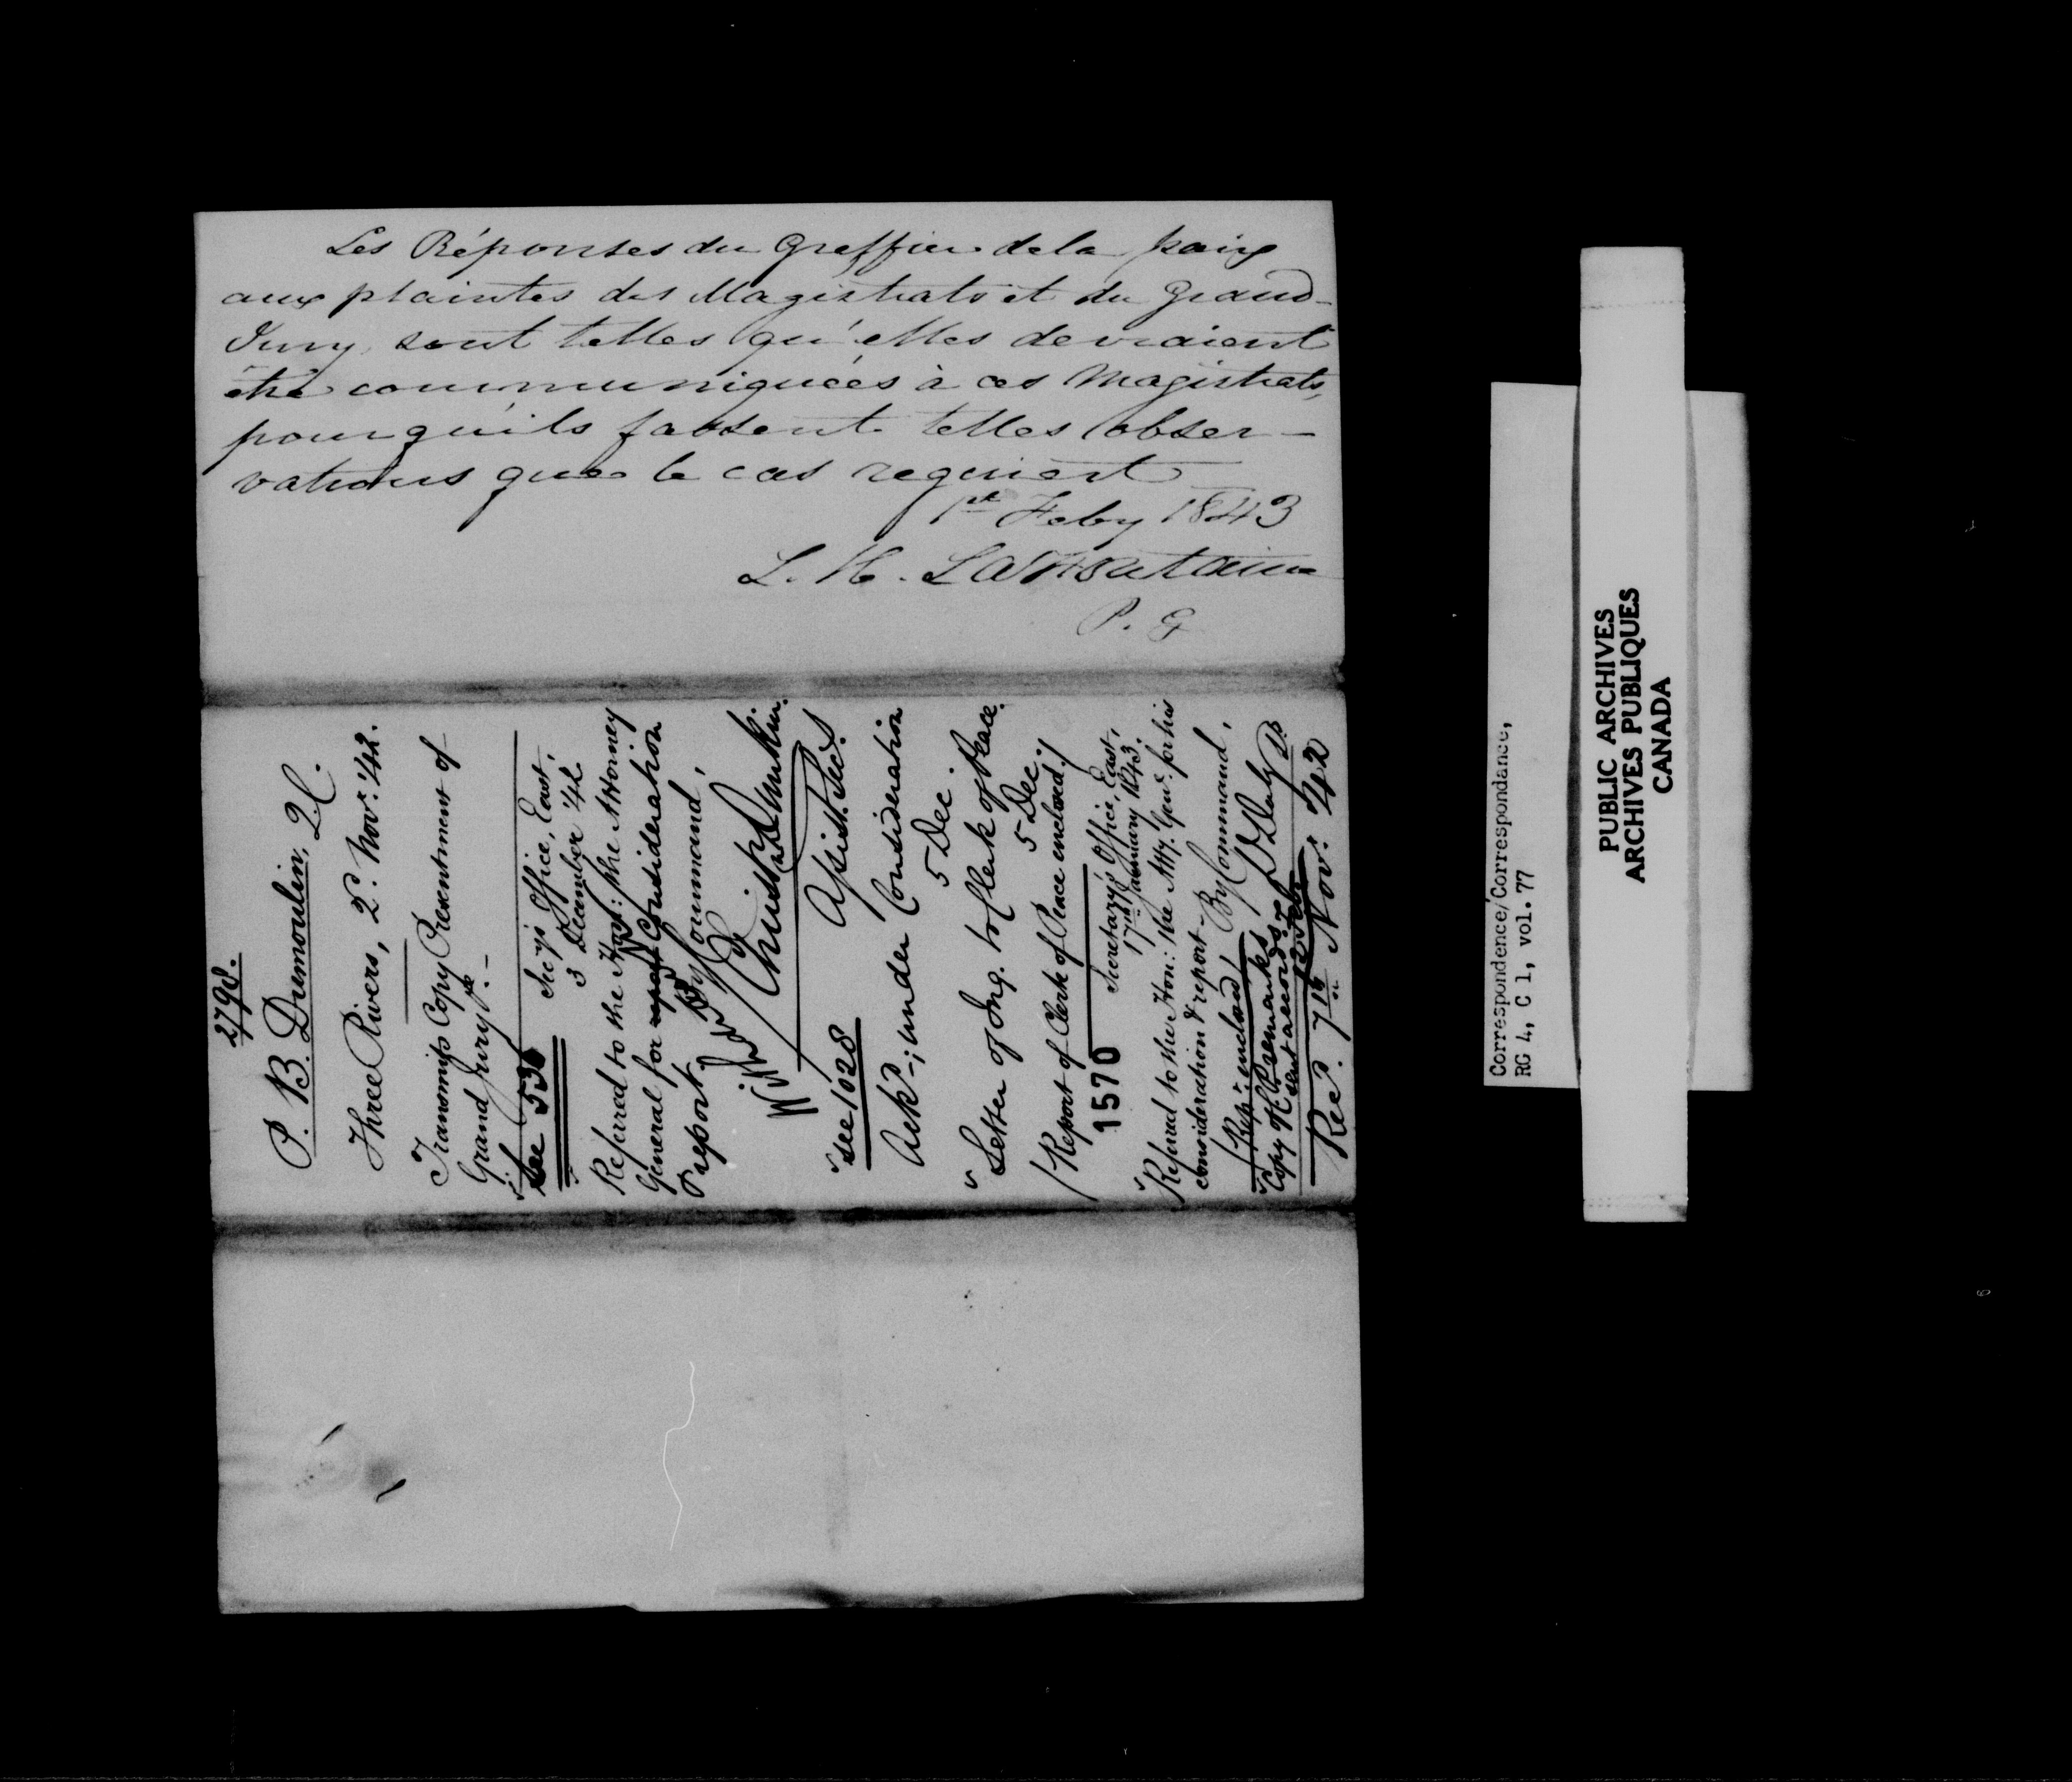 Les Réponses du Greffier de la paix
aux plaintes des Magistrats et du Grand-
Jury, sont telles qu'elles devraient
être communiquées à ces Magistrats,
pour qu'ils fassent telles obser-
vations que le cas requiert
1st Feby 1843
L. H. Lafontaine
P. G
2798.
P. B. Dumoulin, Q.C.
Three Rivers, 2d. Novr. '42.
Transmits Copy Presentment of
Grand Jury &c. –
See 536
Secy's Office, East,
3 December '42
Referred to the Hon: the Attorney
General for report Consideration
& report. By Command,
Christr. Dunkin.
Assist. Sec.
See 1028
Ackd –; under Consideration
5 Dec.
Letter of Inq. to Clerk of Peace.
5 Dec.
(Report of Clerk of Peace enclosed.)
1570
Secretary's Office, East,
17th January 1843.
Referred to the Hon: the Atty. Genl. for his
consideration & report –
By Command,
D Daly
(Rept. enclosed)
Copy of Remarks
sent accordgly
Recd. 7th Novr. '42
Correspondence/Correspondance,
RG 4, C 1, vol. 77
PUBLIC ARCHIVES
ARCHIVES PUBLIQUES
CANADA